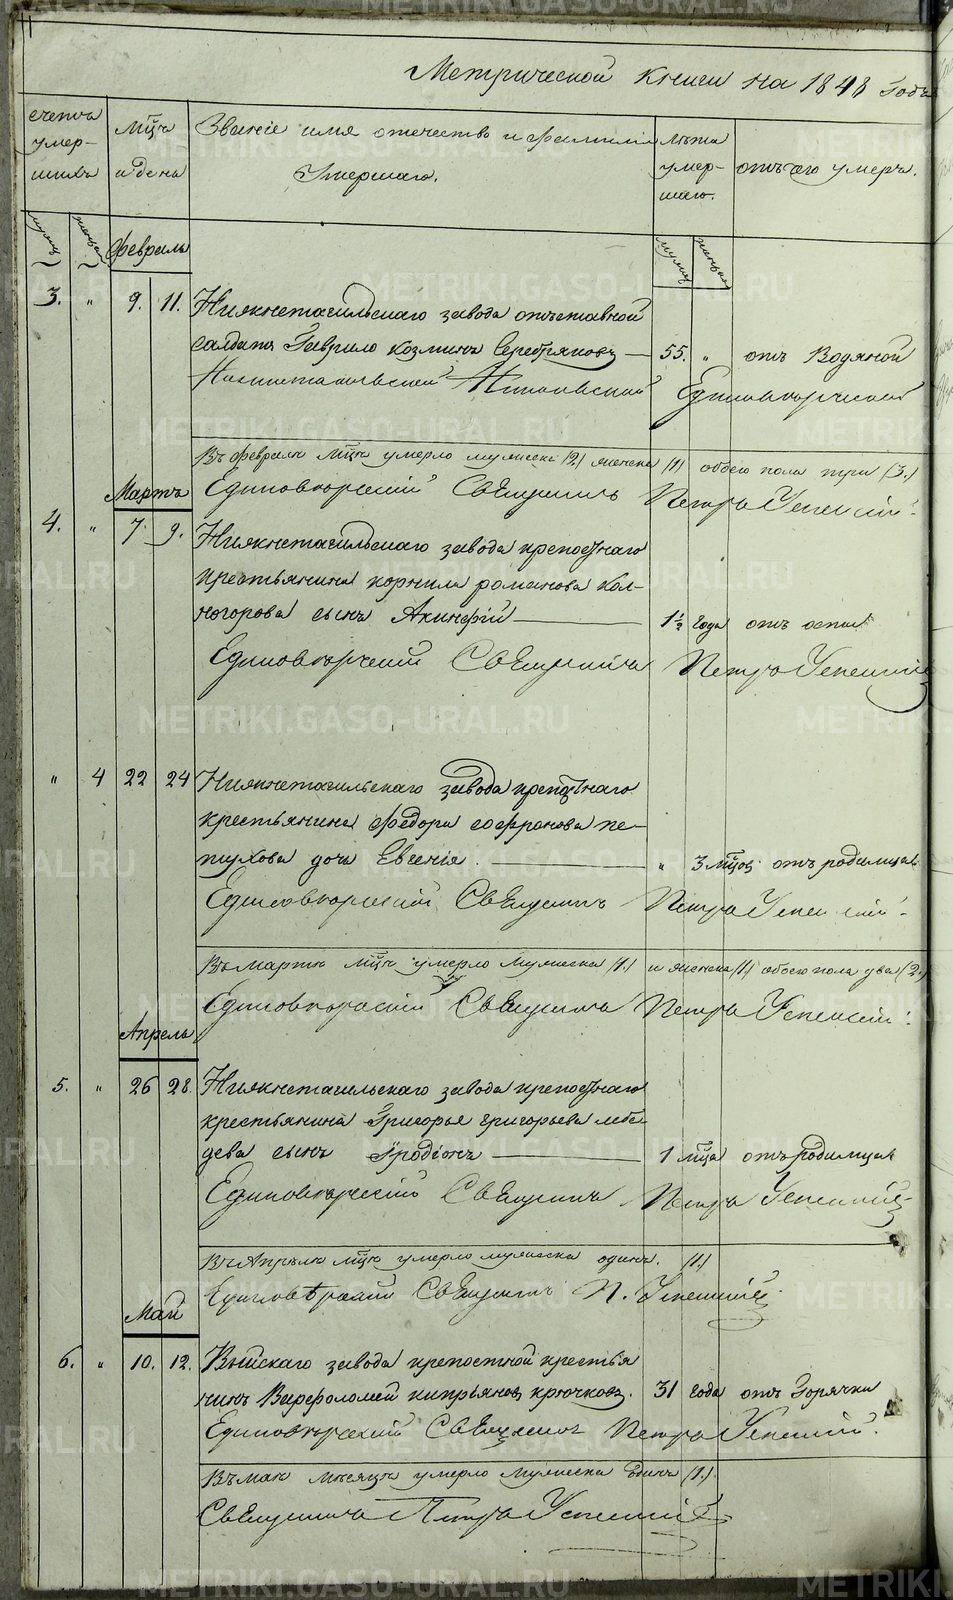 Метрической книги на 1848 годъ
счетъ умер-шихъ
мцъ и день
Званіе имя отечество и фамилія Умершаго.
лѣта умер-шаго.
отъ чего умеръ.
мужск
женска
Февраль
мужск
женска
3. „ 9. 11. Нижнетагильскаго завода отъставной
салдатъ Гаврило козминъ Серебряковъ — 55. „ отъ Водяной
Единовѣрческой
Въ Февралѣ мцѣ умерло мужеска (2) женска (1) обоего пола три (3.)
Единовѣрческій Священникъ Петръ Успенскій.
Мартъ
4. „ 7. 9. Нижнетагильскаго завода крепостнаго
крестьянина корнила романова Кол-
ногорова сынъ Акинфій — 1½ года отъ оспы
Единовѣрческій Священникъ Петръ Успенскій
„ 4 22 24 Нижнетагильскаго завода крепостнаго
крестьянина Федора софронова пе-
тухова дочь Евгенія. — „ 3 мцов. отъ родимца
Единовѣрческій Священникъ Петръ Успенскій.
Въ Мартѣ мцѣ умерло Мужеска (1.) и женска (1) обоего пола два (2.)
Единовѣрческій Священникъ Петръ Успенскій.
Апрель
5. „ 26 28. Нижнетагильскаго завода крепостнаго
крестьянина Григорья григорьева лебе
дева сынъ Іродіонъ — 1 мца отъ родимца
Единовѣрческій Священникъ Петръ Успенскій
Въ Апрѣлѣ мцѣ умерло мужеска одинъ. (1)
Единовѣрческій Священникъ П. Успенскій
Май
6. „ 10. 12. Выйскаго завода крепостной крестья
нинъ Варфоломей киприяновъ крючковъ. 31 года отъ Горячки
Единовѣрческій Священникъ Петръ Успенскій.
Въ маѣ месяцѣ умерло мужеска Единъ (1.)
Священникъ Петръ Успенскій
METRIKI.GASO-URAL.RU